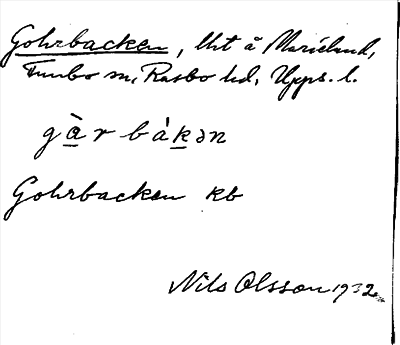 Gohrbacken, lht å Marielund,
Funbo sn, Rasbo hd, Upps. l.
gàrbákən
Gohrbacken kb
Nils Olsson 1932